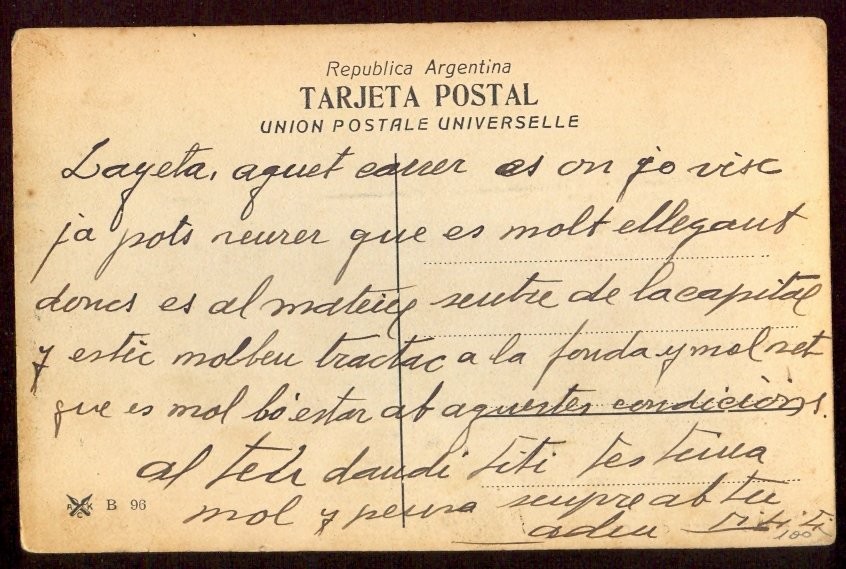 Republica Argentina
TARJETA POSTAL
UNION POSTALE UNIVERSELLE
Layeta, aquet carrer es on jo visc
ja pots veurer que es molt ellegant
doncs es al mateix sentre de la capital
y estic molbeu tractac a la fonda y mol net
que es mol bó estar ab aquestes condicións.
al teu daudi titi testima
mol y pensa sempre ab tu
adeu
B 96
100